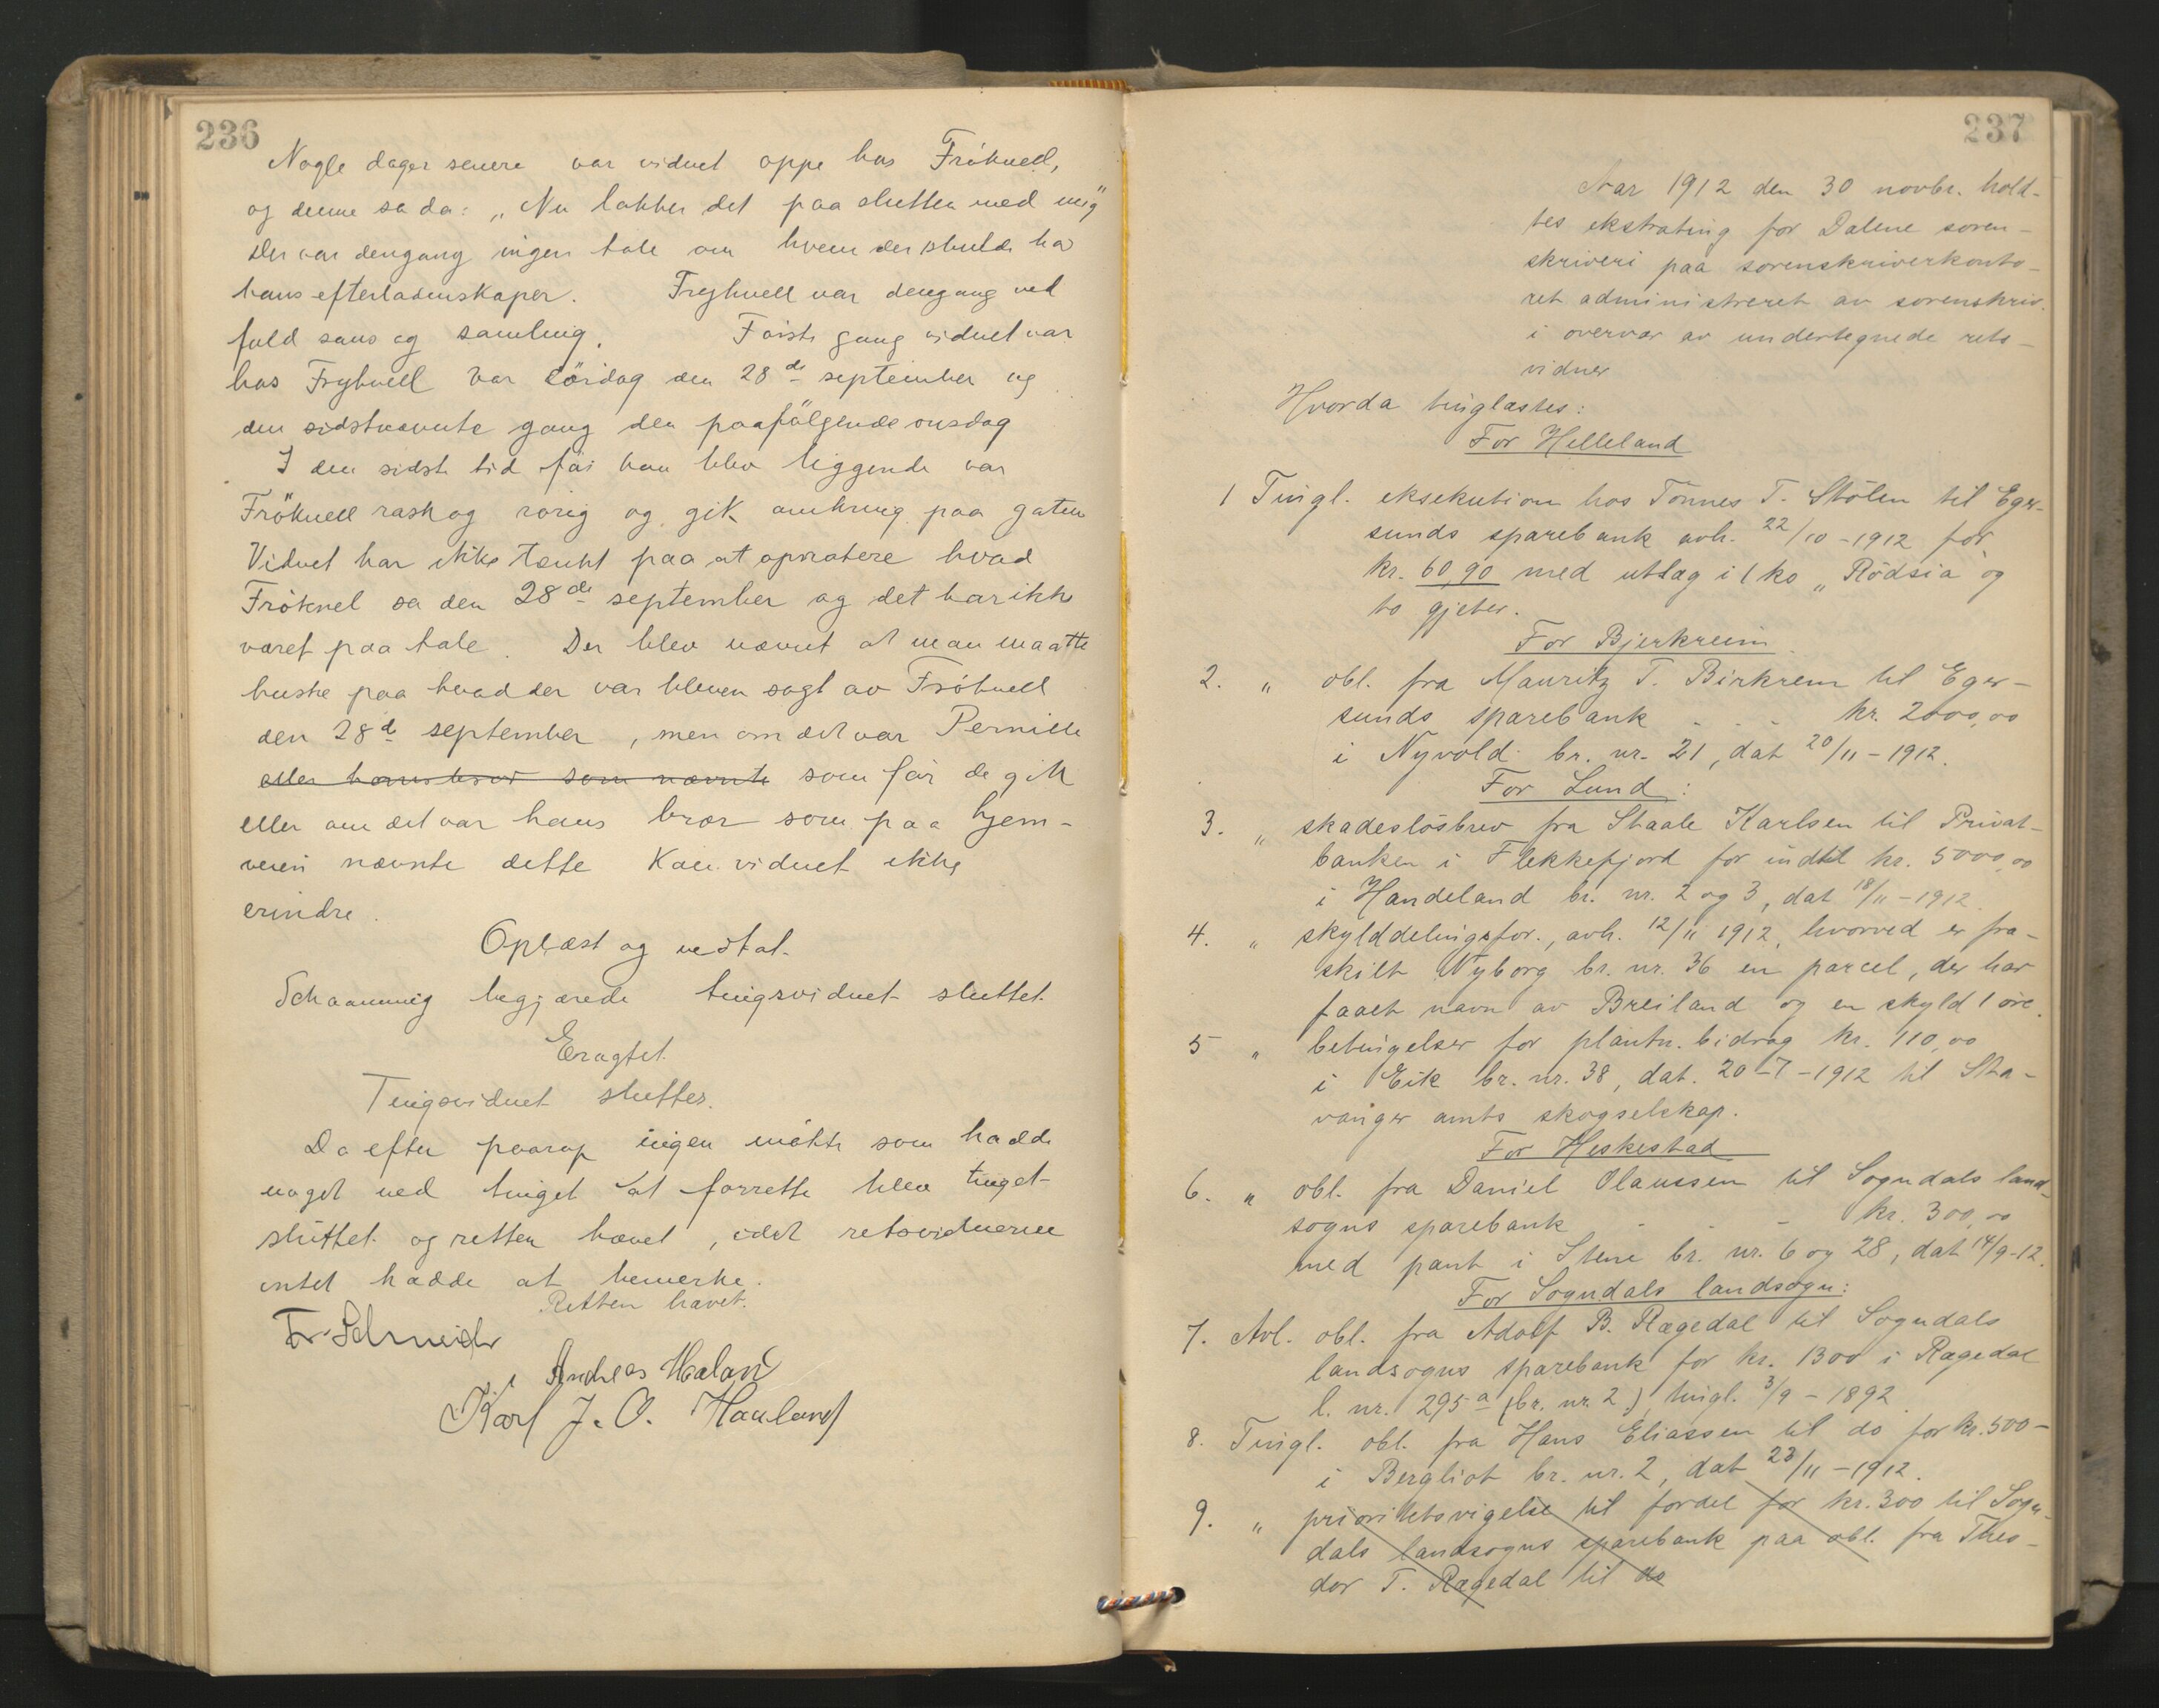 236
Nogle dager senere var vidnet oppe hos Fröknell,
og denne sa da: „Nu lakker det paa slutten med mig"
Der var dengang ingen tale om hvem der skulde ha
hans efterladenskaper. Fryknell var dengang ved
fuld sans og samling. Förste gang vidnet var
hos Fryknell var lördag den 28de september og
den sidstnævnte gang den paafölgende onsdag
I den sidste tid för han blev liggende var
Fröknell rask og rörig og gik omkring paa gaten
Vidnet har ikke tænkt paa at opnotere hvad
Fröknel sa den 28de september og det har ikke
været paa tale. Der blev nævnt at man maatte
huske paa hvad der var bleven sagt av Fröknell
den 28de september, men om det var Pernille
eller hans bror som nævnte som för de gik
eller om det var hans bror som paa hjem-
veien nævnte dette kan vidnet ikke
erindre.
Oplæst og vedtat.
Schanning begjærede tingsvidnet sluttet.
Eragtet.
Tingsvidnet sluttes.
Da efter paarop ingen mötte som hadde
noget ved tinget at forrette blev tinget
sluttet og retten hævet, idet retsvidnerne
intet hadde at bemerke.
Retten hævet.
Fr. Schneider
Andreas Haaland
Karl J. O. Hauland
237
Aar 1912 den 30 novbr. hold-
tes ekstrating for Dalene soren-
skriveri paa sorenskriverkonto-
ret administreret av sorenskriv.
i overvær av undertegnede rets-
vidner
Hvorda tinglæstes:
For Helleland
1 Tingl. eksekution hos Tönnes T. Stölen til Eger-
sunds sparebank avh. 22/10-1912 for
kr. 60,90 med utlæg i 1 ko „Rödsia" og
to gjeter.
For Bjerkreim
2. „ obl. fra Mauritz T. Birkrem til Eger-
sunds sparebank - - - kr. 2000,00
i Nyvold br. nr. 21, dat 20/11-1912.
For Lund:
3. „ skadeslösbrev fra Staale Karlsen til Privat-
banken i Flekkefjord for indtil kr. 5000,00
i Handeland br. nr. 2 og 3, dat 18/11-1912.
4. „ skylddelingsfor., avh. 12/11 1912, hvorved er fra-
skilt Nyborg br. nr. 36 en parcel, der har
faaet navn av Breiland og en skyld 1 øre.
5 „ betingelser for plantn. bidrag kr. 110,00
i Eik br. nr. 38, dat. 20-7-1912 til Sta-
vanger amts skogselskap.
For Heskestad
6. „ obl. fra Daniel Olaussen til Sogndals land-
sogns sparebank - - - kr. 300,00
med pant i Stene br. nr. 6 og 28, dat 14/9-12.
For Sogndals landsogn:
7. Avl. obl. fra Adolf B. Rægedal til Sogndals
landsogns sparebank for kr. 1300 i Rægedal
l. nr. 295a (br. nr. 2), tingl. 3/9-1892.
8. Tingl. obl. fra Hans Eliassen til do for kr. 500-
i Bergliot br. nr. 2, dat 23/11-1912.
9. „ prioritetsvigelse til fordel for kr. 300 til Sogn-
dals landsogns sparebank paa obl. fra Theo-
dor T. Rægedal til do